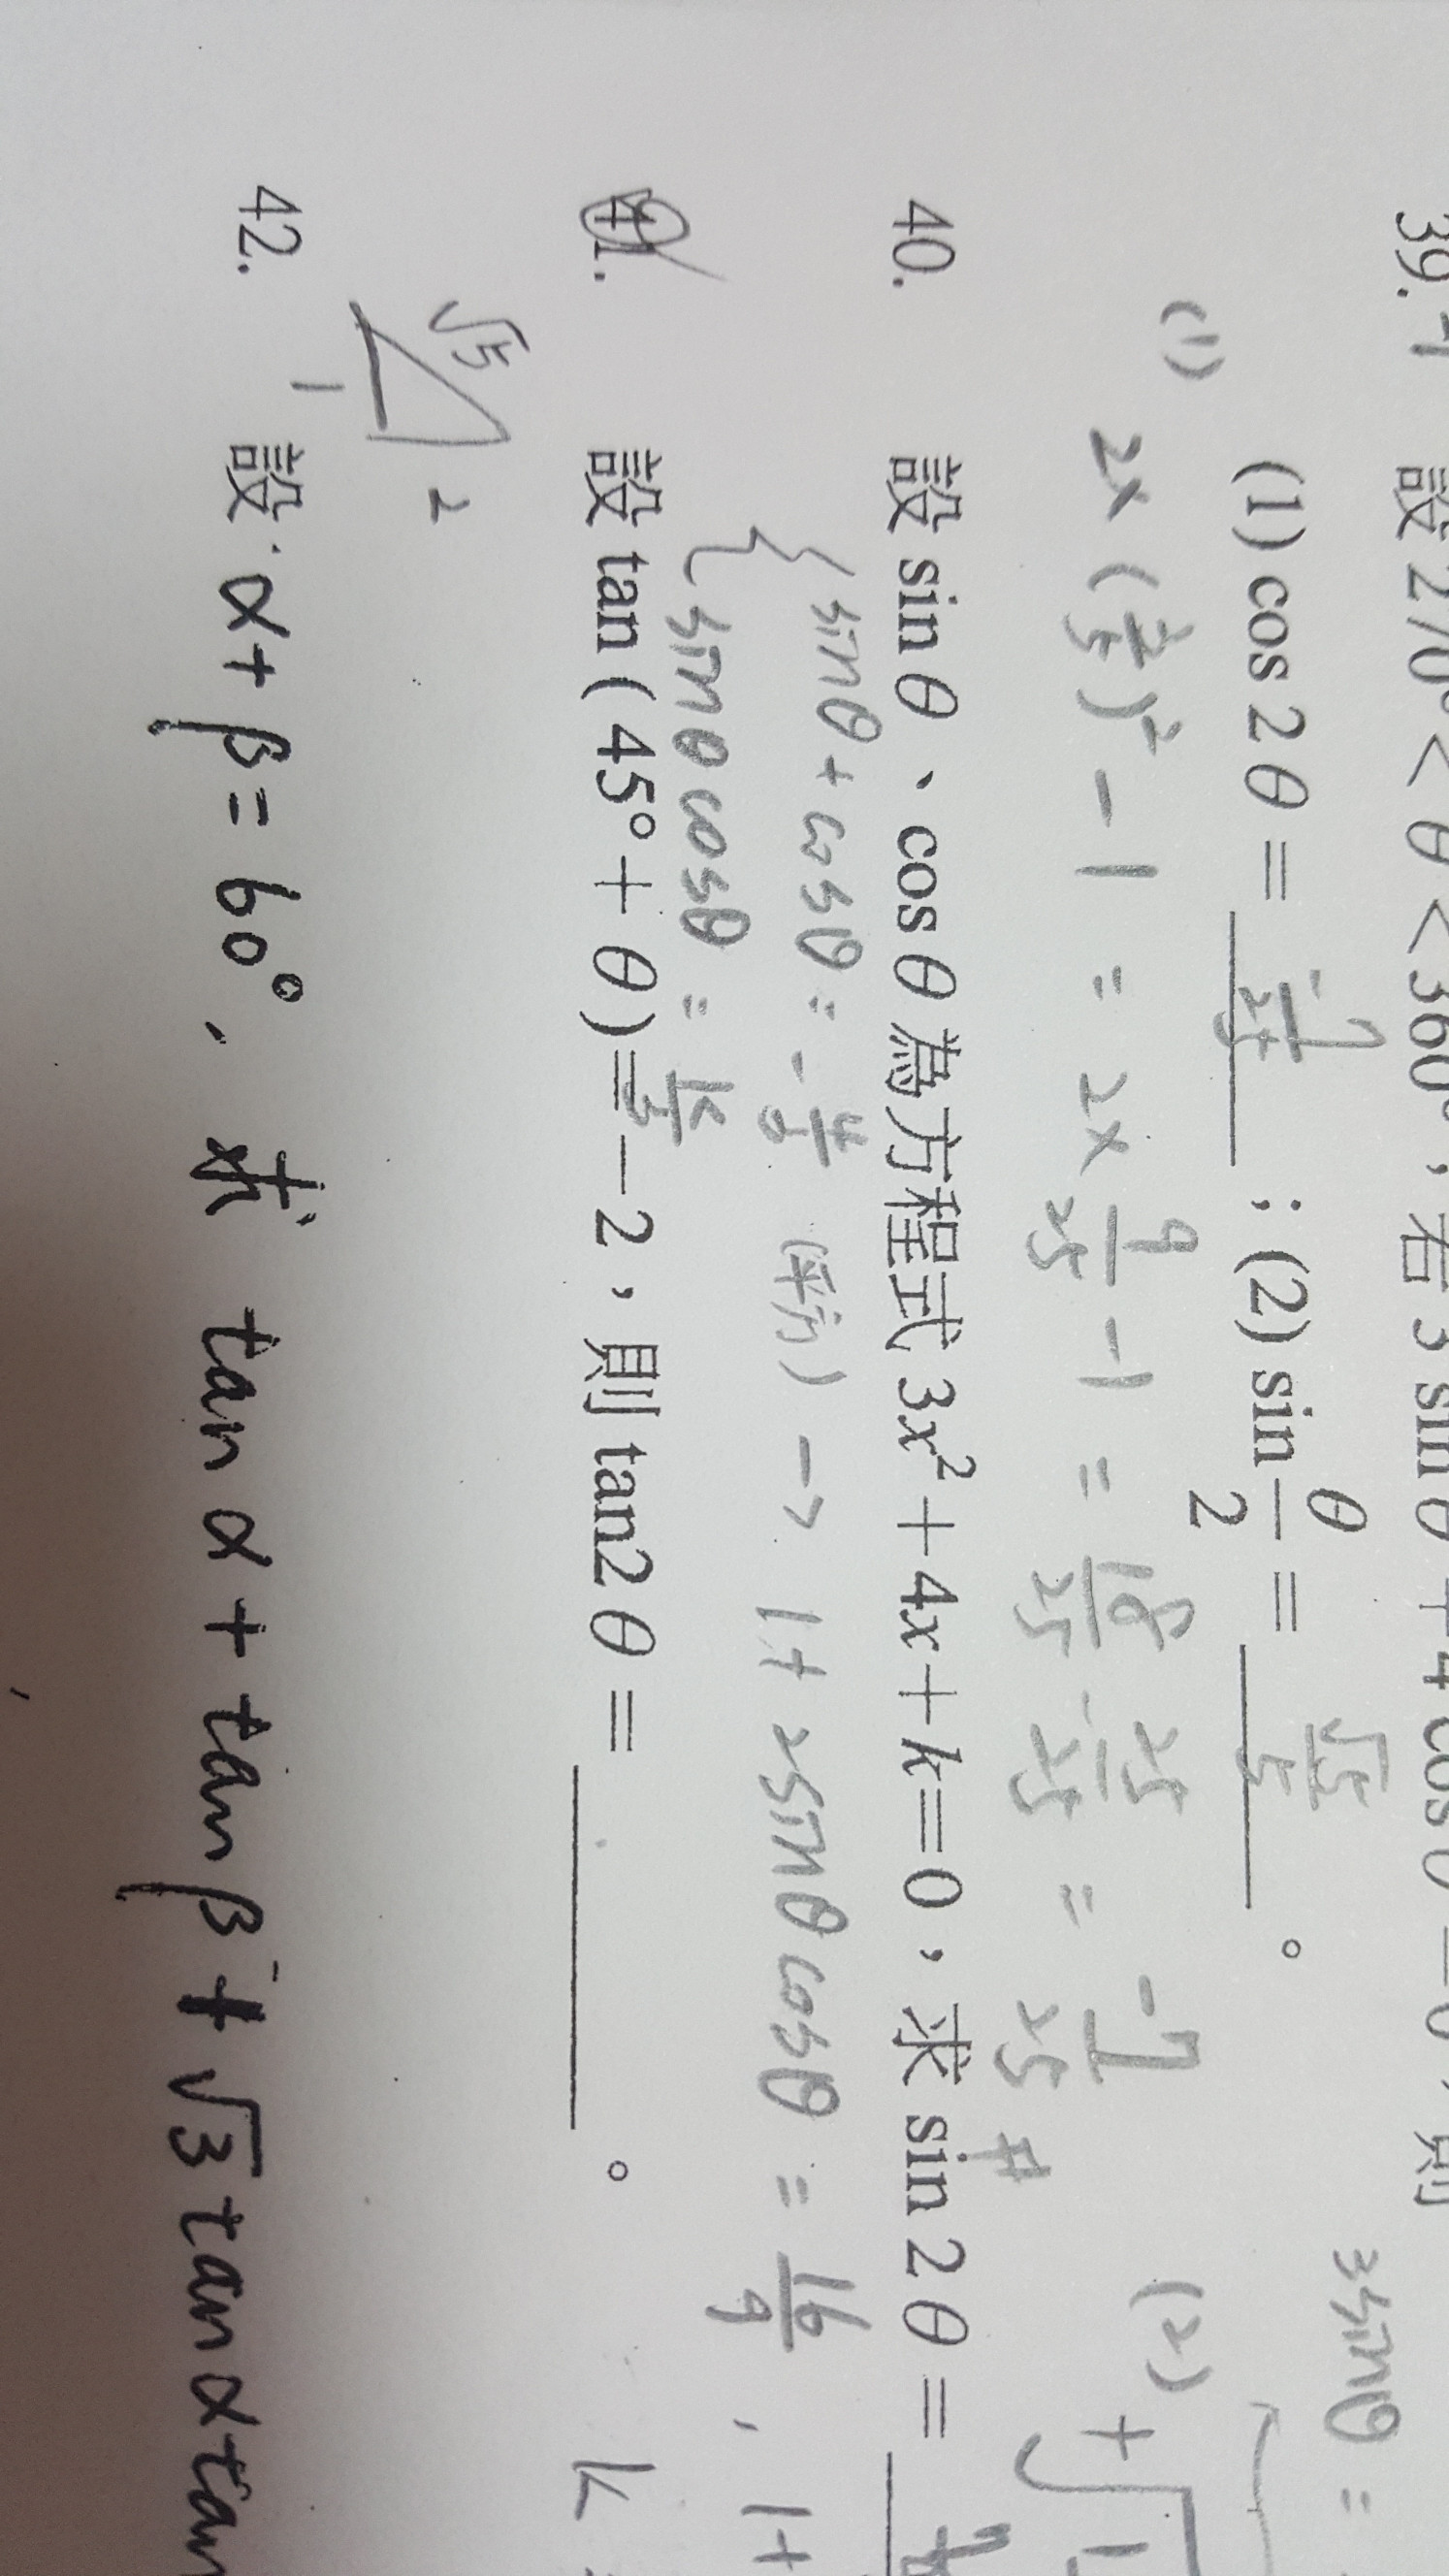 39. 設 270° < θ < 360°，若 3 sin θ + 4 cos θ = 0，則
3sinθ =
(1) cos 2θ = -7/25 ；(2) sin θ/2 = √5/5 。
(1) 2×(3/5)² - 1 = 2× 9/25 - 1 = 18/25 - 25/25 = -7/25 # (2) +√1
40. 設 sin θ、cos θ 為方程式 3x² + 4x + k = 0，求 sin 2θ =
{ sinθ + cosθ = -4/3 (平方) → 1 + 2sinθcosθ = 16/9 , 1+
sinθcosθ = k/3
41. 設 tan ( 45° + θ ) = -2，則 tan2θ = ______ 。 k =
√5 2 1
42. 設 α + β = 60°, 求 tan α + tan β + √3 tan α tan